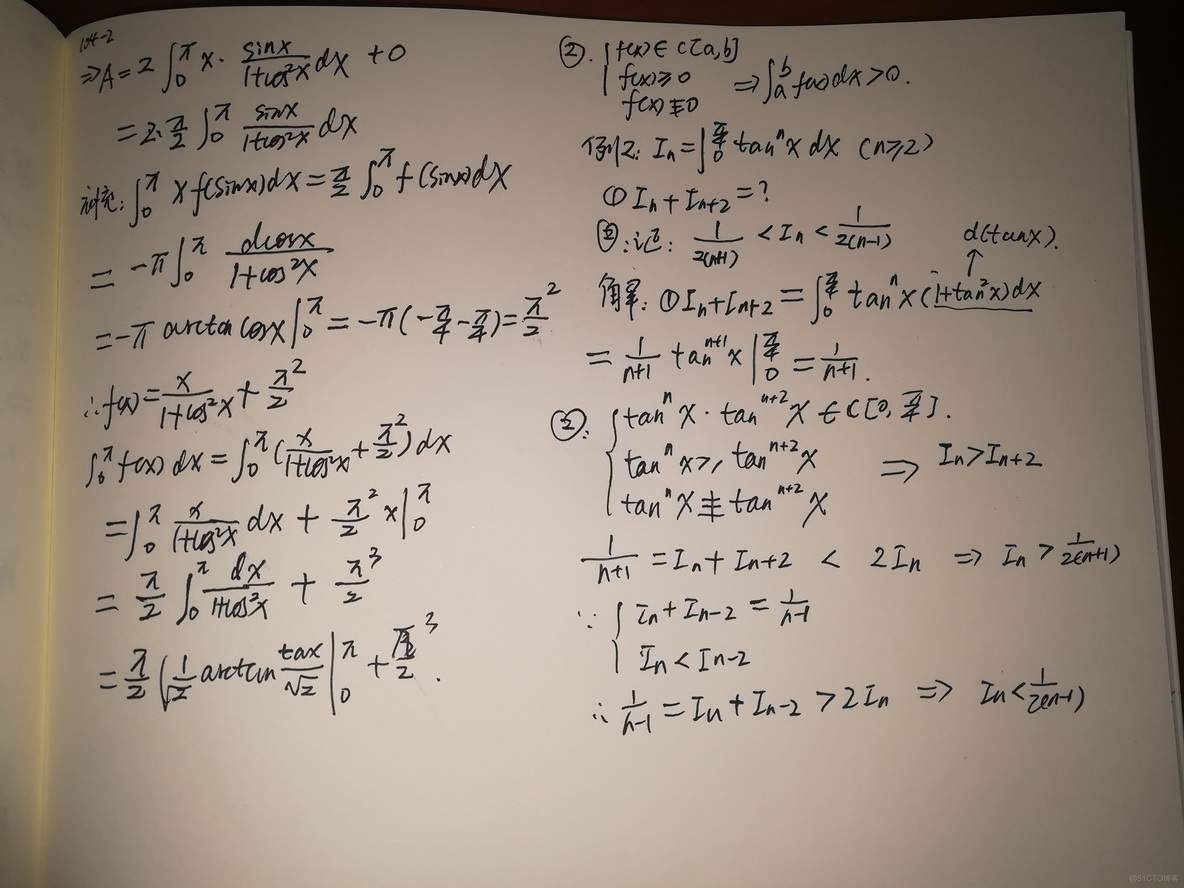 104-2
⇒A=2∫₀^π x·sinx/(1+cos²x) dx +0
=2·π/2 ∫₀^π sinx/(1+cos²x) dx
补充:∫₀^π xf(sinx)dx=π/2 ∫₀^π f(sinx)dx
= -π∫₀^π dcosx/(1+cos²x)
=-π arctan cosx|₀^π = -π(-π/4-π/4)=π²/2
∴f(x)=x/(1+cos²x)+π²/2
∫₀^π f(x)dx=∫₀^π (x/(1+cos²x)+π²/2)dx
=∫₀^π x/(1+cos²x) dx + π²/2 x|₀^π
= π/2 ∫₀^π dx/(1+cos²x) + π³/2
= π/2 (1/√2 arctan tax/√2 |₀^π + π³/2.
②. { f(x)∈C[a,b]
f(x)≥0 ⇒∫ₐ^b f(x)dx>0.
f(x)≢0
例2: Iₙ=∫₀^(π/4) tanⁿx dx (n≥2)
① Iₙ+Iₙ₊₂=?
②:证: 1/2(n+1) <Iₙ< 1/2(n-1)
d(tanx).
↑
解: ①Iₙ+Iₙ₊₂=∫₀^(π/4) tanⁿx(1+tan²x)dx
= 1/(n+1) tanⁿ⁺¹x|₀^(π/4) = 1/(n+1).
②: { tanⁿx·tanⁿ⁺²x∈C[0,π/4].
tanⁿx≥,tanⁿ⁺²x ⇒ Iₙ>Iₙ₊₂
tanⁿx≢tanⁿ⁺²x
1/(n+1) =Iₙ+Iₙ₊₂ < 2Iₙ ⇒ Iₙ> 1/2(n+1)
∵ { Iₙ+Iₙ₋₂= 1/(n-1)
Iₙ<Iₙ₋₂
∴ 1/(n-1) =Iₙ+Iₙ₋₂>2Iₙ ⇒ Iₙ< 1/2(n-1)
@51CTO博客